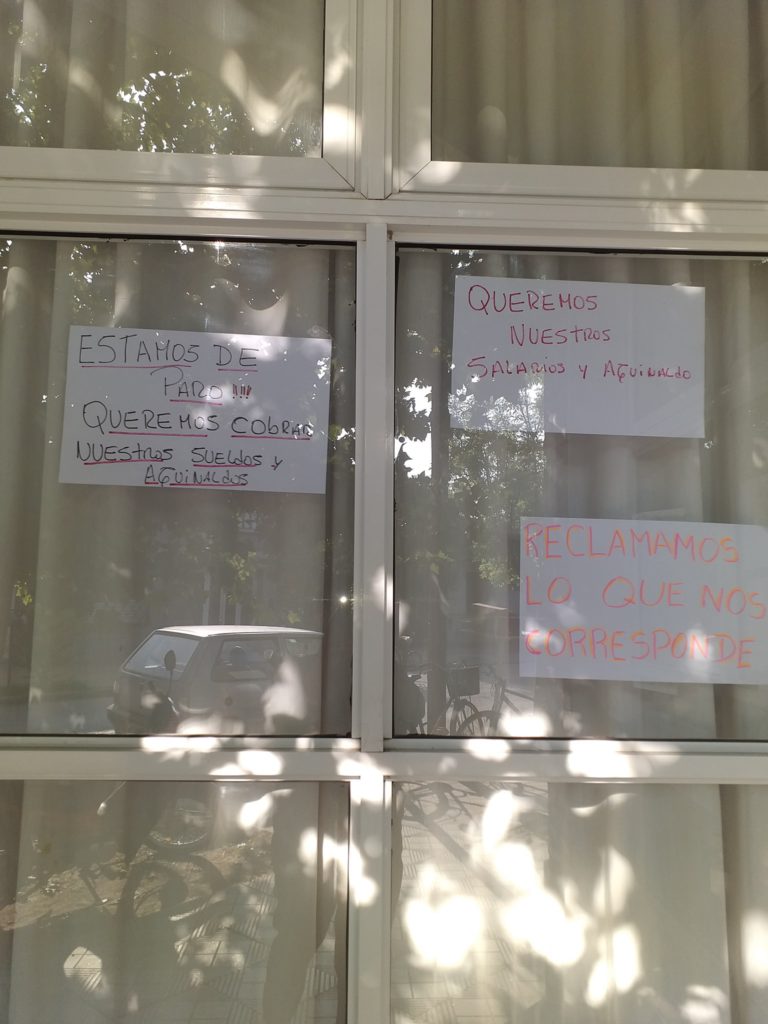 ESTAMOS DE
PARO !!!
QUEREMOS COBRAR
NUESTROS SUELDOS y
AGUINALDOS
QUEREMOS
NUESTROS
SALARIOS y AGUINALDO
RECLAMAMOS
LO QUE NOS
CORRESPONDE